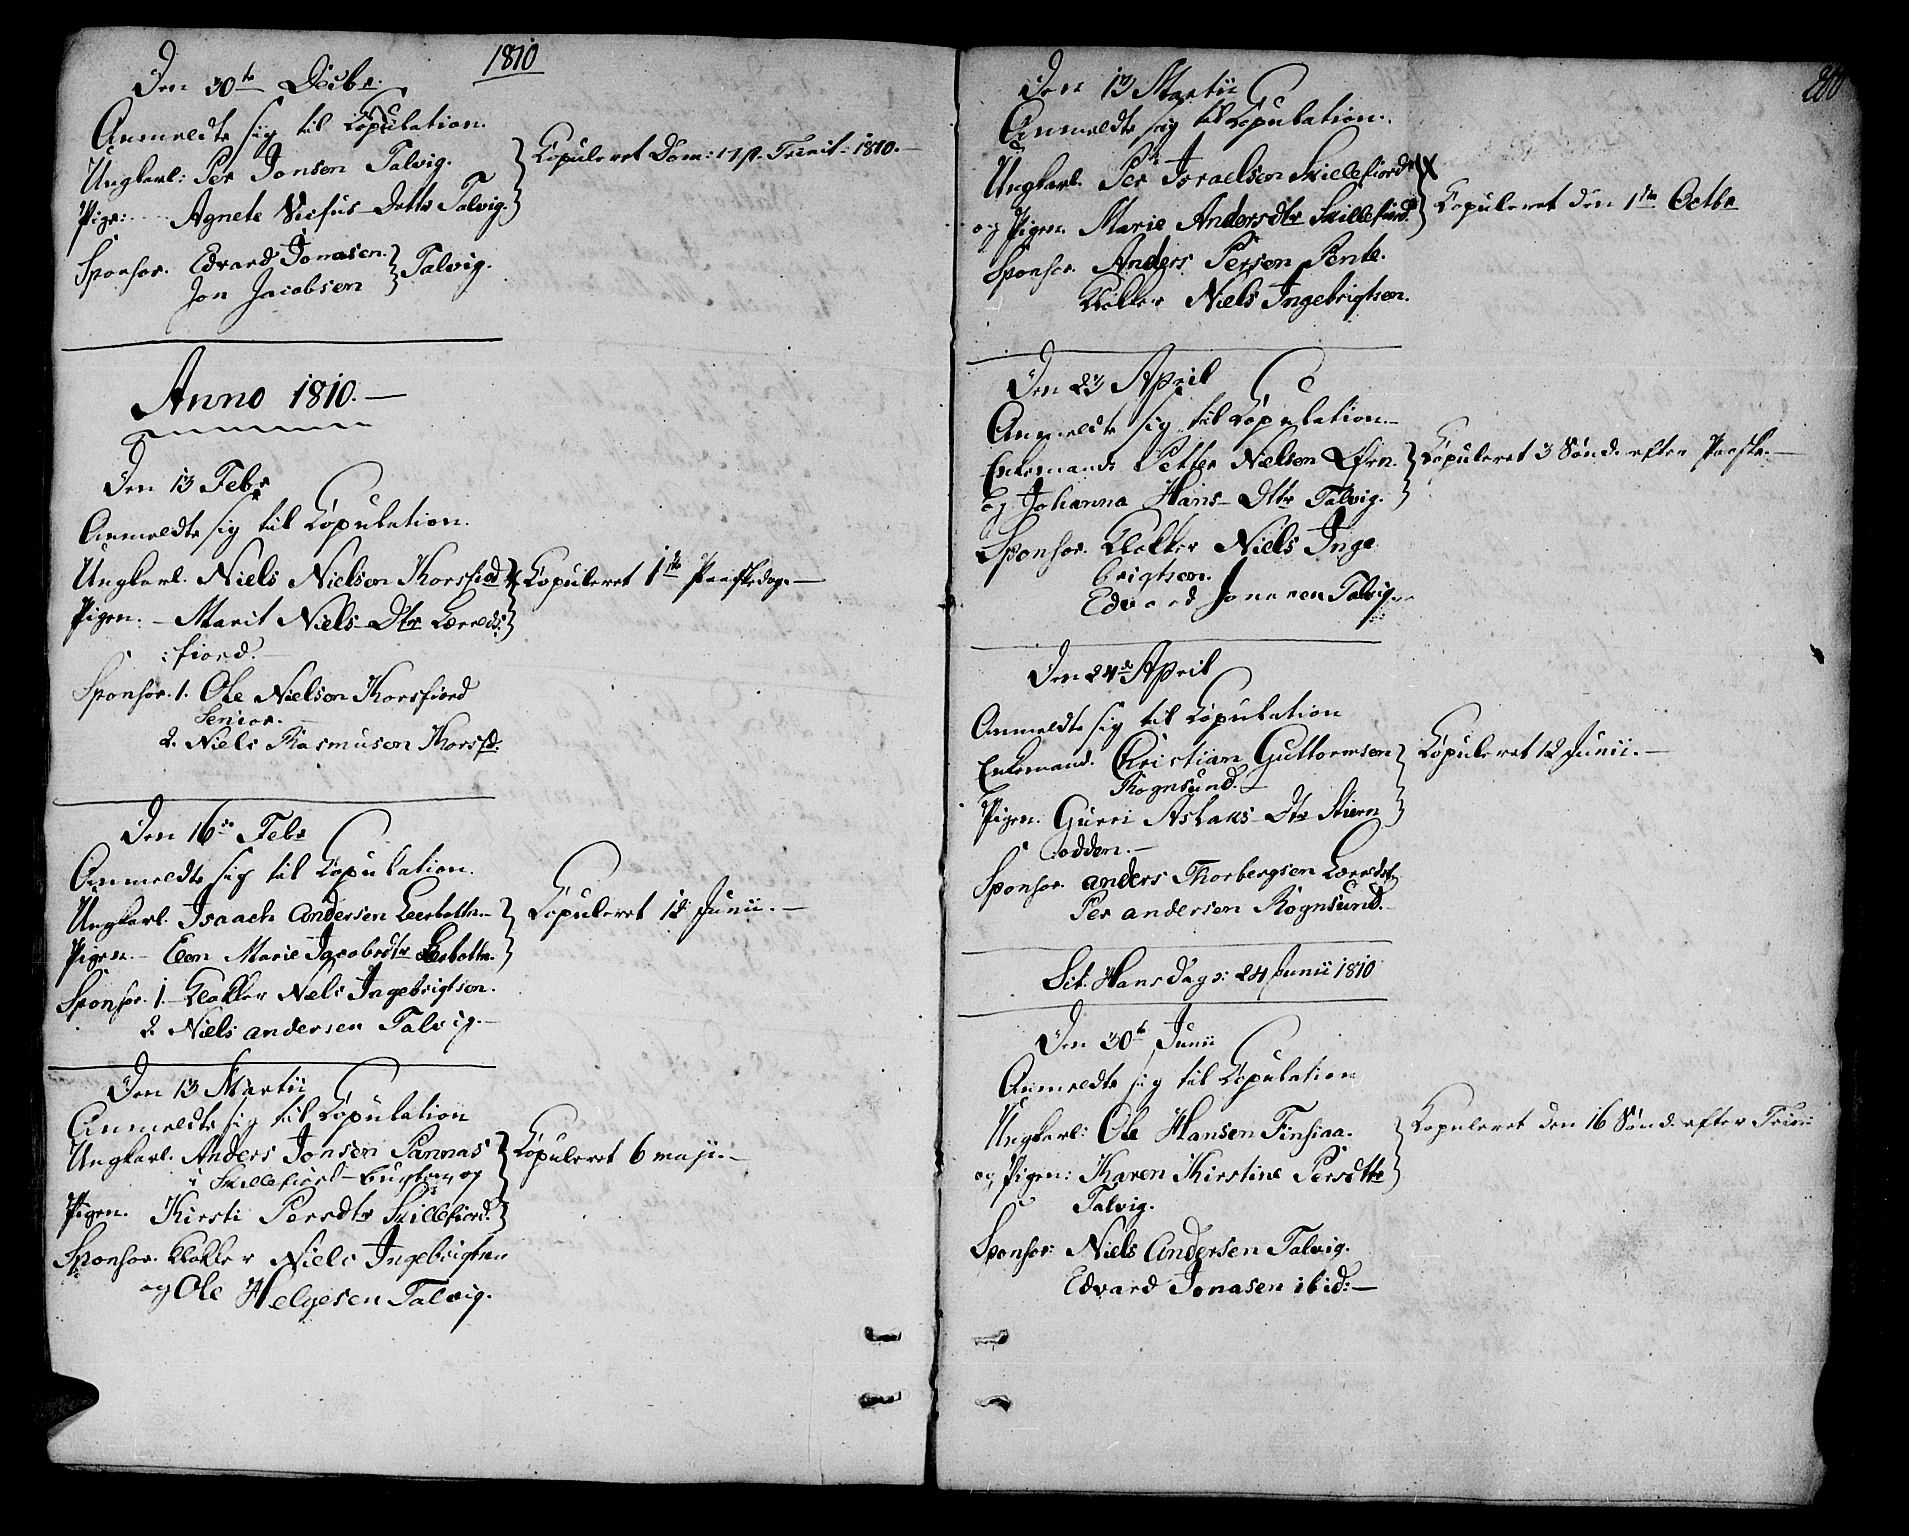 1810
Den 30te Decbr.
Anmeldte sig til Copulation.
Ungkarl: Per Jonsen Talvig.
Pige: Agnete Sifus Dattr Talvig.
Copuleret Dom: 17 p. Trinit: 1810.
Sponsor. Edvard Jonasen.
Jon Jacobsen
Talvig.
Anno 1810.
Den 13 Febr
Anmeldte sig til Copulation.
Ungkarl. Niels Nielsen Korsfiord
Pigen. Marit Niels Dtr Lerreds:
:fiord.
Copuleret 1ste Paaskedag.
Sponsor. 1. Ole Nielsen Korsfiord
Senior.
2. Niels Rasmusen Korsfd.
Den 16de Febr
Anmeldte sig til Copulation.
Ungkarl. Isaach Andersen Leerbotten
Pigen. Elen Marie Jacobsdtr Leerbotten.
Copuleret 12 Junii.
Sponsor. 1. Klokker Niels Ingebrigtsen.
2. Niels andersen Talvig.
Den 13 Martii
Anmeldte sig til Copulation
Ungkarl. Anders Jonsen Pannas
i Skillefiord-bugten og
Pigen. Kirsti Persdtr Skillefiord.
Copuleret 6 maji.
Sponsor. Klokker Niels Ingebrigtsen
og Ole Helgesen Talvig.
200
Den 13 Martii
Anmeldte sig til Copulation.
Ungkarl. Per Israelsen Skillefiord
og Pigen. Marie Andersdtr Skillefiord.
Copuleret den 1ste Octbr
Sponsor. Anders Persen Pente.
Klokker Niels Ingebrigtsen.
Den 23 April
Anmeldte sig til Copulation.
Enkemand. Petter Nielsen Ørn.
og Johanna Hans Dtr Talvig.
Copuleret 3 Sønd. efter Paaske.
Sponsor. Klokker Niels Inge
brigtsen.
Edvard Jonasen Talvig.
Den 24de April
Anmeldte sig til Copulation
Enkemand. Christian Guttormsen
Rognsund.
Pigen. Gurri Aslaks Dtr Stiern
:odden.
Copuleret 12 Junii.
Sponsor. anders Thorbergsen Lerredsf.
Per andersen Rognsund.
Sct. Hansdag: 24 Junii 1810
Den 30te Junii
Anmeldte sig til Copulation
Ungkarl: Ole Hansen Finsiaa.
og Pigen: Karen Kirstine Persdtr
Talvig.
Copuleret den 16 Sønd. efter Trin:
Sponsor: Niels Andersen Talvig.
Edvard Jonasen ibid: